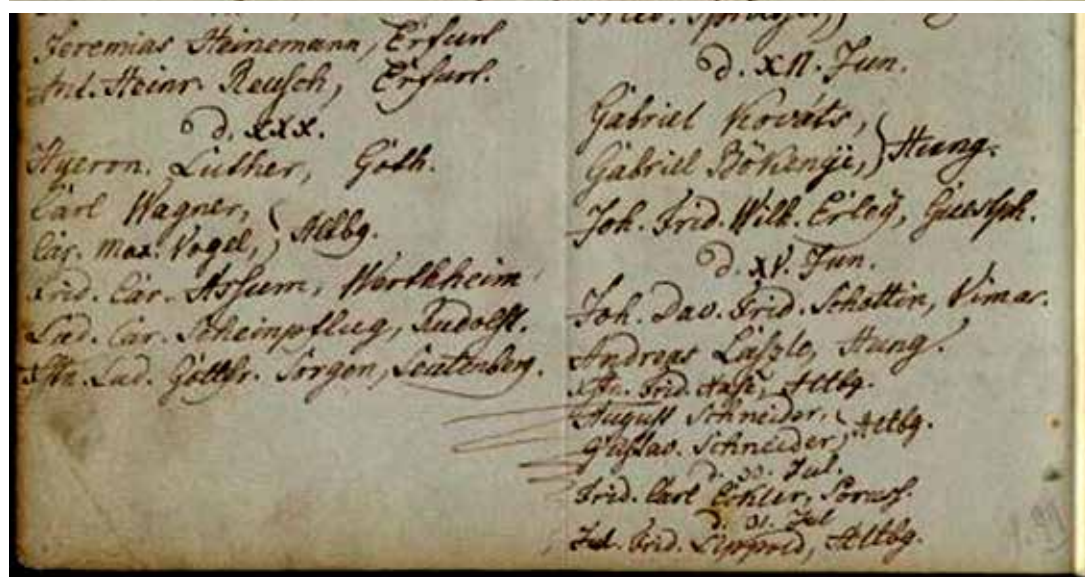 Jeremias Heinemann, Erfurt
Ant. Heinr. Reusch, Erfurt.
d. XXX.
Hyeron. Luther, Goth.
Carl Wagner,
Car. Max. Vogel, } Altbg.
Frid. Car. Assum, Werthheim
Lud. Car. Scheinpflug, Rudolst.
Lud. Gottfr. Sorgen, Leutenberg.
Fried.
d. XII. Jun.
Gabriel Kováts,
Gabriel Bökenÿi, } Hung.
Joh. Frid. Wilh. Erleÿ, Guestph.
d. XV. Jun.
Joh. Dav. Frid. Schottin, Vimar.
Andreas Laszlo, Hung.
Frid. Hase, Altbg.
August Schneider,
Gustav. Schneider, } Altbg.
d. 30. Jul.
Frid. Carl
d. 31. Jul
Jul. Frid. Altbg.